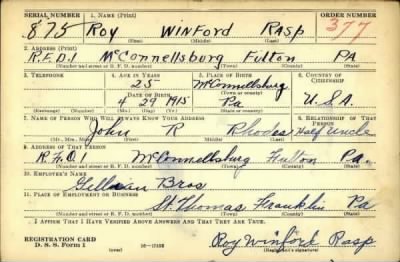 SERIAL NUMBER 1. NAME (Print) ORDER NUMBER
875 Roy WINFORD RASP 377
(First) (Middle) (Last)
2. ADDRESS (Print)
R.F.D.1 McConnellsburg Fulton PA
(Number and street or R. F. D. number) (Town) (County) (State)
3. TELEPHONE 4. AGE IN YEARS 5. PLACE OF BIRTH 6. COUNTRY OF CITIZENSHIP
25 McConnellsburg
(Town or county)
DATE OF BIRTH
4 29 1915 Pa U.S.A.
(Exchange) (Number) (Mo.) (Day) (Yr.) (State or country)
7. NAME OF PERSON WHO WILL ALWAYS KNOW YOUR ADDRESS 8. RELATIONSHIP OF THAT PERSON
John R Rhodes Half Uncle
(Mr., Mrs., Miss) (First) (Middle) (Last)
9. ADDRESS OF THAT PERSON
R.F.D.1 McConnellsburg Fulton Pa.
(Number and street or R. F. D. number) (Town) (County) (State)
10. EMPLOYER'S NAME
Bros
11. PLACE OF EMPLOYMENT OR BUSINESS
St. Thomas Franklin Pa
(Number and street or R. F. D. number) (Town) (County) (State)
I AFFIRM THAT I HAVE VERIFIED ABOVE ANSWERS AND THAT THEY ARE TRUE.
REGISTRATION CARD
D. S. S. Form 1 (over) Roy Winford Rasp
(Registrant's signature)